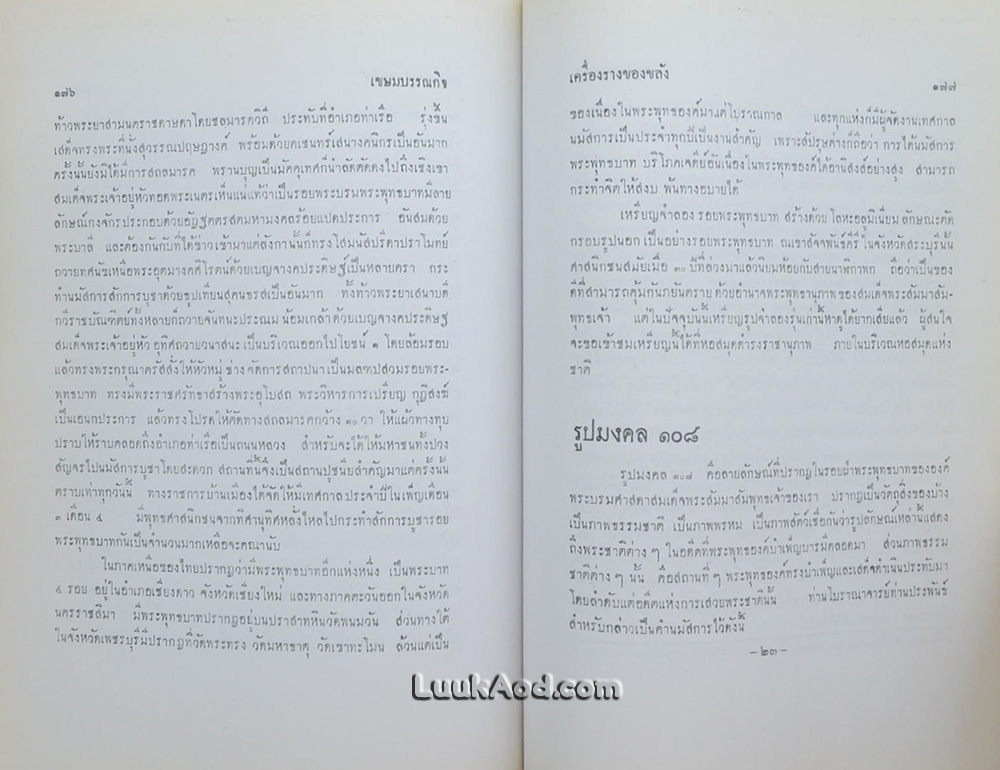 ๑๗๖ เขษมบรรณกิจ
ท้าวพระยาสามนตราชดาษดาโดยชลมารควิถี ประทับที่อำเภอท่าเรือ รุ่งขึ้น
เสด็จทรงพระที่นั่งสุวรรณปฤษฎางค์ พร้อมด้วยคเชนทร์เสนางคนิกรเป็นอันมาก
ครั้งนั้นยังมิได้มีการสถลมารค พรานบุญเป็นมัคคุเทศก์นำลัดตัดดงไปถึงเชิงเขา
สมเด็จพระเจ้าอยู่หัวทอดพระเนตรเห็นแน่แท้ว่าเป็นรอยพระบรมพระพุทธบาทมีลาย
ลักษณ์กงจักรประกอบด้วยอัฏฐุตตรสตมหามงคลร้อยแปดประการ อันสมด้วย
พระบาลี และต้องกันกับที่ได้ข่าวเข้ามาแต่ลังกานั้นก็ทรงโสมนัสปรีดาปราโมทย์
ถวายทศนัขเหนือพระอุตมางคศิโรตน์ด้วยเบญจางคประดิษฐ์เป็นหลายครา กระ
ทำนมัสการสักการบูชาด้วยธูปเทียนสุคนธรสเป็นอันมาก ทั้งท้าวพระยาเสนาบดี
กวีราชบัณฑิตย์ทั้งหลายก็ถวายจันทนะประณม น้อมเกล้าด้วยเบญจางคประดิษฐ
สมเด็จพระเจ้าอยู่หัว อุทิศถวายวนาสณะเป็นบริเวณออกไปโยชน์ ๑ โดยล้อมรอบ
แล้วทรงพระกรุณาตรัสสั่งให้หัวหมู่ช่างจัดการสถาปนาเป็นมลฑปสวมรอยพระ-
พุทธบาท ทรงมีพระราชศรัทธาสร้างพระอุโบสถ พระวิหารการเปรียญ กุฏิสงฆ์
เป็นเอนกประการ แล้วทรงโปรดให้ตัดทางสถลมารคกว้าง ๑๐ วา ให้แผ้วทางทุบ
ปราบให้ราบตลอดถึงอำเภอท่าเรือเป็นถนนหลวง สำหรับจะได้ให้มหาชนทั้งปวง
สัญจรไปนมัสการบูชาโดยสะดวก สถานที่นี้จึงเป็นสถานปูชนียสำคัญมาแต่ครั้งนั้น
ตราบเท่าทุกวันนี้ ทางราชการบ้านเมืองได้จัดให้มีเทศกาลประจำปีในเพ็ญเดือน
๓ เดือน ๔ มีพุทธศาสนิกชนจากทิศานุทิศหลั่งไหลไปกระทำสักการบูชารอย
พระพุทธบาทกันเป็นจำนวนมากเหลือจะคณานับ
ในภาคเหนือของไทยปรากฏว่ามีพระพุทธบาทอีกแห่งหนึ่ง เป็นพระบาท
๔ รอย อยู่ในอำเภอเชียงดาว จังหวัดเชียงใหม่ และทางภาคตะวันออกในจังหวัด
นครราชสิมา มีพระพุทธบาทปรากฏอยู่บนปราสาทหินวัดพนมวัน ส่วนทางใต้
ในจังหวัดเพชรบุรีมีปรากฏที่วัดพระทรง วัดมหาธาตุ วัดเขาทะโมน ล้วนแต่เป็น
เครื่องรางของขลัง ๑๗๗
ของเนื่องในพระพุทธองค์มาแต่โบราณกาล และทุกแห่งก็มีผู้จัดงานเทศกาล
นมัสการเป็นประจำทุกปีเป็นงานสำคัญ เพราะสัปรุษต่างก็ถือว่า การได้นมัสการ
พระพุทธบาท บริโภคเจดีย์อันเนื่องในพระพุทธองค์ได้อานิสงส์อย่างสูง สามารถ
กระทำจิตให้สงบ พ้นทางอบายได้
เหรียญจำลองรอยพระพุทธบาท สร้างด้วยโลหะอลูมิเนียม ลักษณะตัด
กรอบรูปนอกเป็นอย่างรอยพระพุทธบาท ณเขาสัจจพันธ์คีรี ในจังหวัดสระบุรีนั้น
ศาสนิกชนสมัยเมื่อ ๓๐ ปีที่ล่วงมาแล้วนิยมห้อยกับสายนาฬิกาพก ถือว่าเป็นของ
ดีที่สามารถคุ้มกันภยันตราย ด้วยอำนาจพระพุทธานุภาพของสมเด็จพระสัมมาสัม-
พุทธเจ้า แต่ในปัจจุบันนี้เหรียญรูปจำลองรุ่นเก่านี้หาดูได้ยากเสียแล้ว ผู้สนใจ
จะขอเข้าชมเหรียญนี้ได้ที่หอสมุดดำรงราชานุภาพ ภายในบริเวณหอสมุดแห่ง
ชาติ
รูปมงคล ๑๐๘
รูปมงคล ๑๐๘ คือลายลักษณ์ที่ปรากฏในรอยฝ่าพระพุทธบาทขององค์
พระบรมศาสดาสมเด็จพระสัมมาสัมพุทธเจ้าของเรา ปรากฏเป็นวัตถุสิ่งของบ้าง
เป็นภาพธรรมชาติ เป็นภาพพรหม เป็นภาพสัตว์เชื่อกันว่ารูปลักษณ์เหล่านี้แสดง
ถึงพระชาติต่าง ๆ ในอดีตที่พระพุทธองค์บำเพ็ญบารมีตลอดมา ส่วนภาพธรรม
ชาติต่าง ๆ นั้น คือสถานที่ ๆ พระพุทธองค์ทรงบำเพ็ญและเสด็จดำเนินประทับมา
โดยลำดับแต่อดีตแห่งการเสวยพระชาตินั้น ท่านโบราณาจารย์ท่านประพันธ์
สำหรับกล่าวเป็นคำนมัสการไว้ดังนี้
- ๒๓ -
LuukAod.com